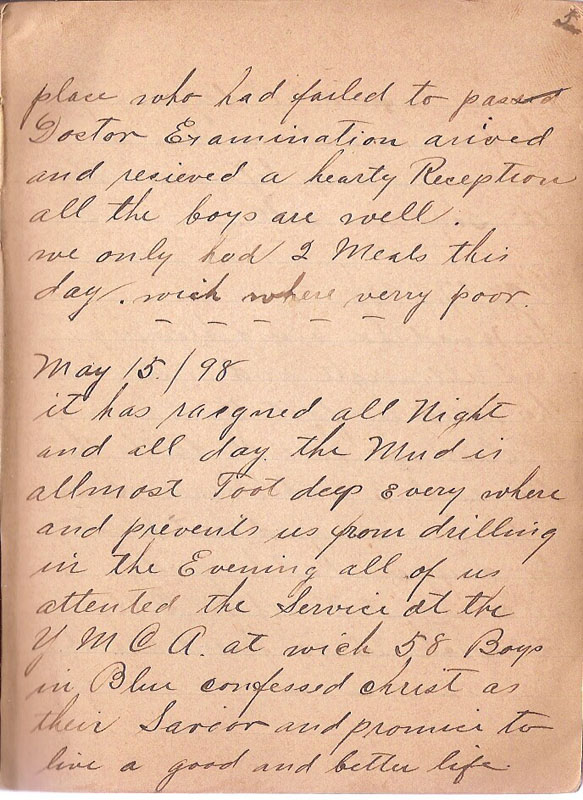 5
place who had failed to passed
Doctor Examination arived
and resieved a hearty Reception
all the boys are well.
we only had 2 Meals this
day. wich where verry poor.
May 15./98
it has raegned all Night
and all day. the Mud is
allmost Foot deep Every where
and prevents us from drilling
in the Evening all of us
attented the Service at the
Y M C A. at wich 58 Boys
in Blue confessed christ as
their Savior and promice to
live a good and better life.